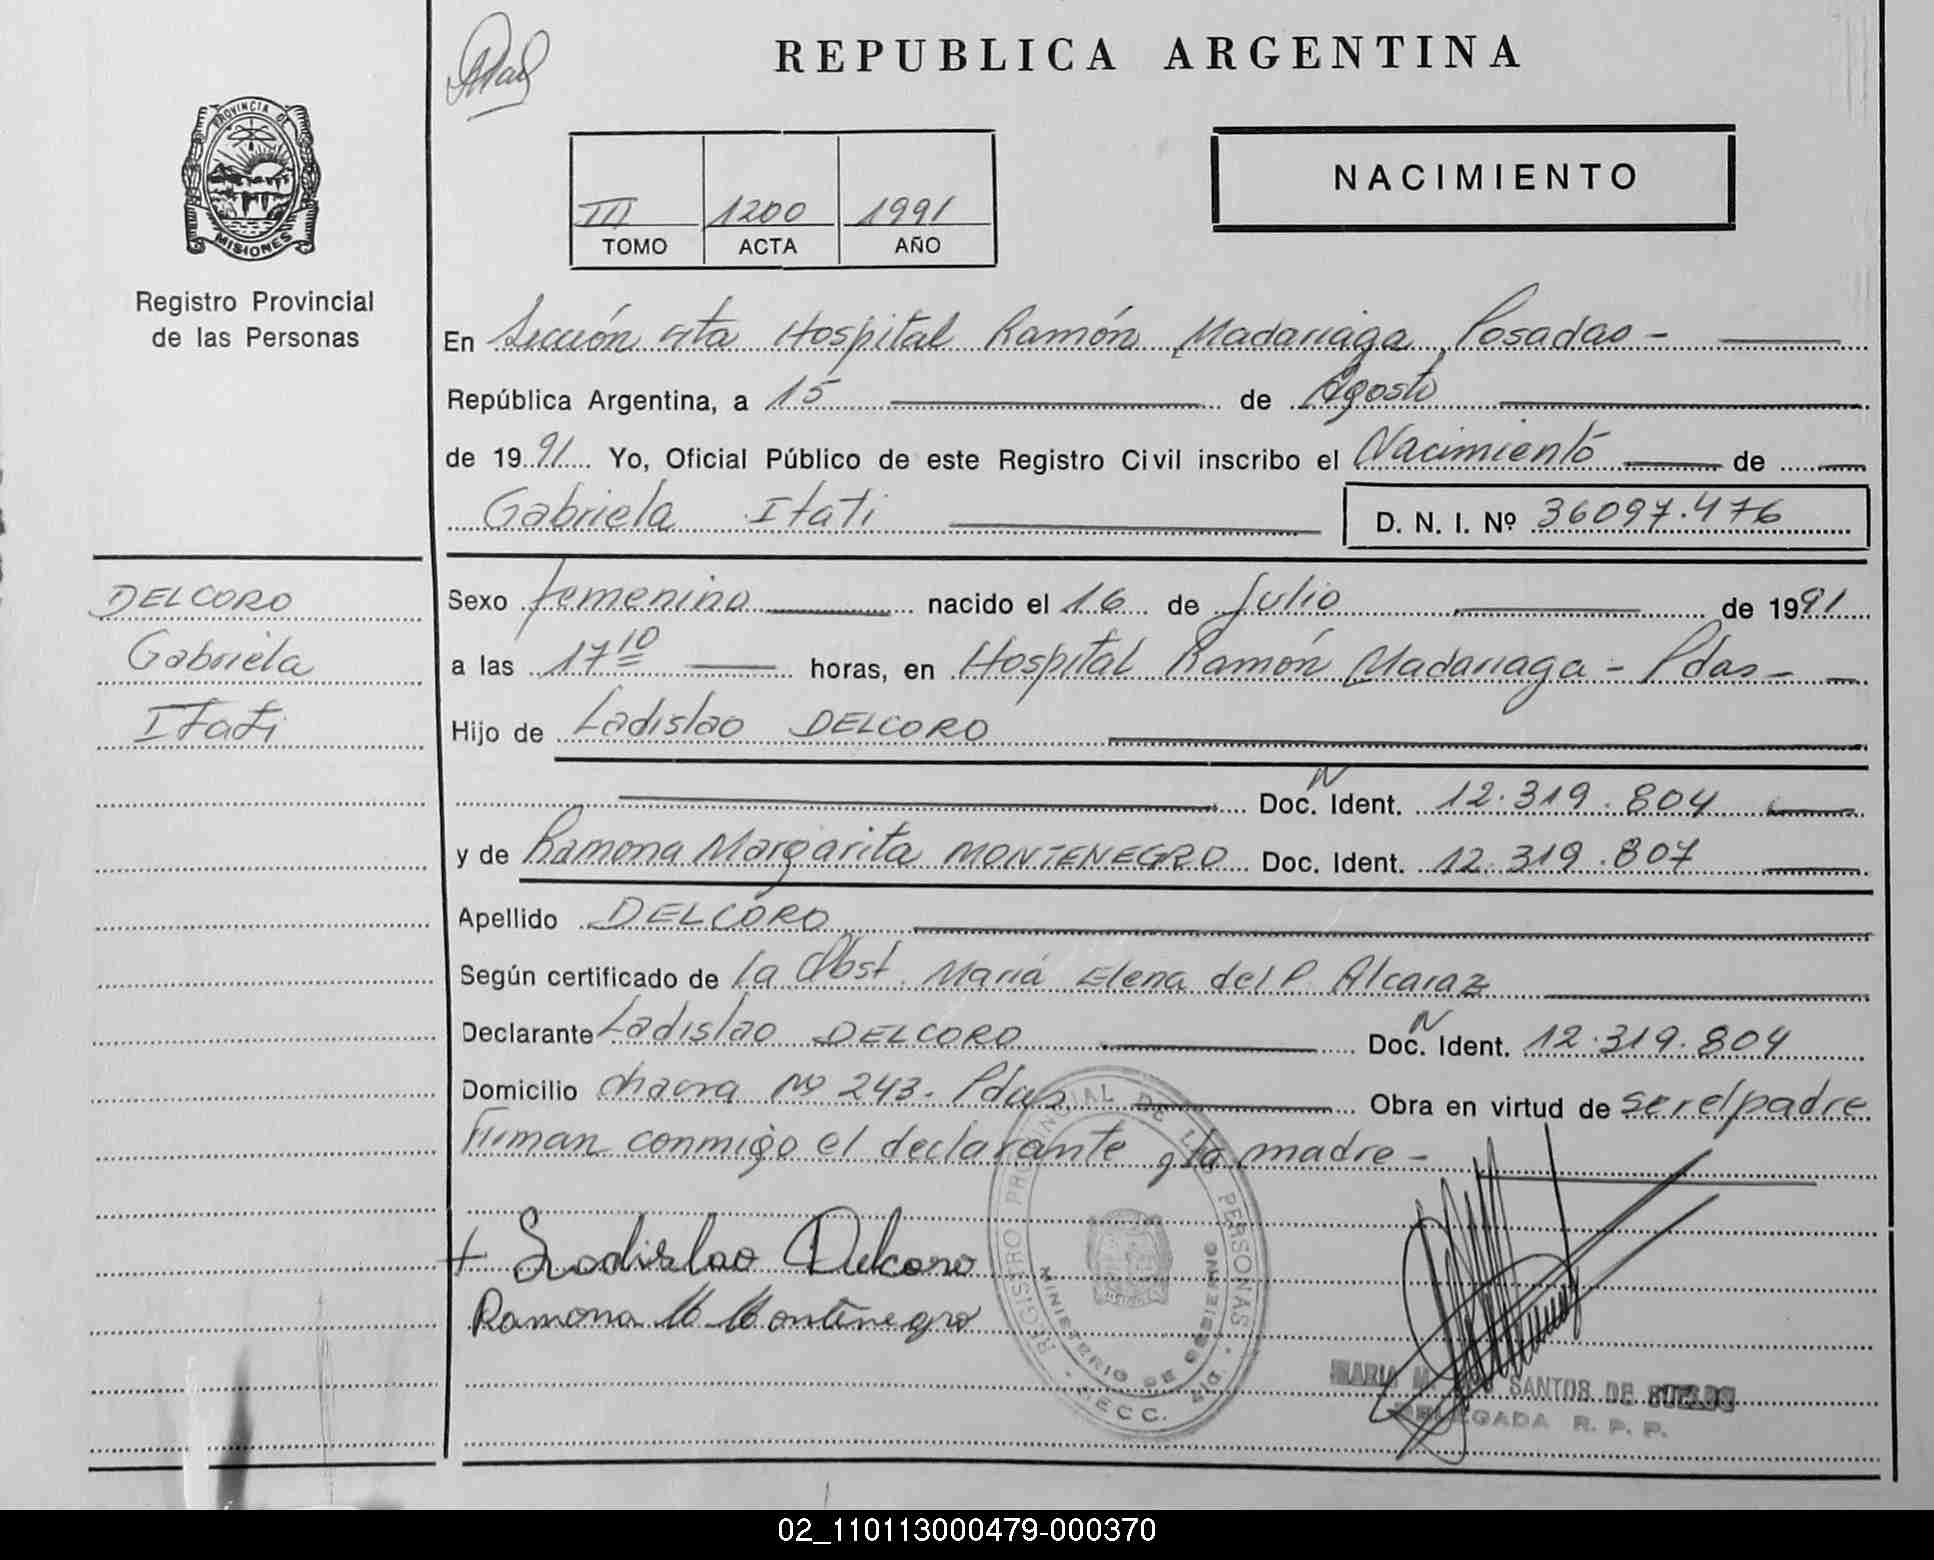 REPUBLICA ARGENTINA
PROVINCIA DE
MISIONES
Registro Provincial
de las Personas
III 1200 1991
TOMO ACTA AÑO
NACIMIENTO
En Sección 4ta Hospital Ramón Madariaga Posadas -
República Argentina, a 15 de Agosto
de 1991 Yo, Oficial Público de este Registro Civil inscribo el Nacimiento de
Gabriela Itati D. N. I. Nº 36097.476
DELCORO
Gabriela
Itati
Sexo femenino nacido el 16 de Julio de 1991
a las 17 10 horas, en Hospital Ramón Madariaga - Pdas -
Hijo de Ladislao DELCORO
Doc. N Ident. 12.319.804
y de Ramona Margarita MONTENEGRO Doc. Ident. 12.319.807
Apellido DELCORO
Según certificado de la Obst. María Elena del P. Alcaraz
Declarante Ladislao DELCORO Doc. N Ident. 12.319.804
Domicilio chacra Nº 243. Pdas Obra en virtud de ser el padre
Firman conmigo el declarante y la madre -
+ Ladislao Delcoro
Ramona M Montenegro
REGISTRO PROVINCIAL DE LAS PERSONAS
MINISTERIO DE GOBIERNO
SECC. 4ta.
MARIA M. SANTOS DE
DELEGADA R. P. P.
02_110113000479-000370